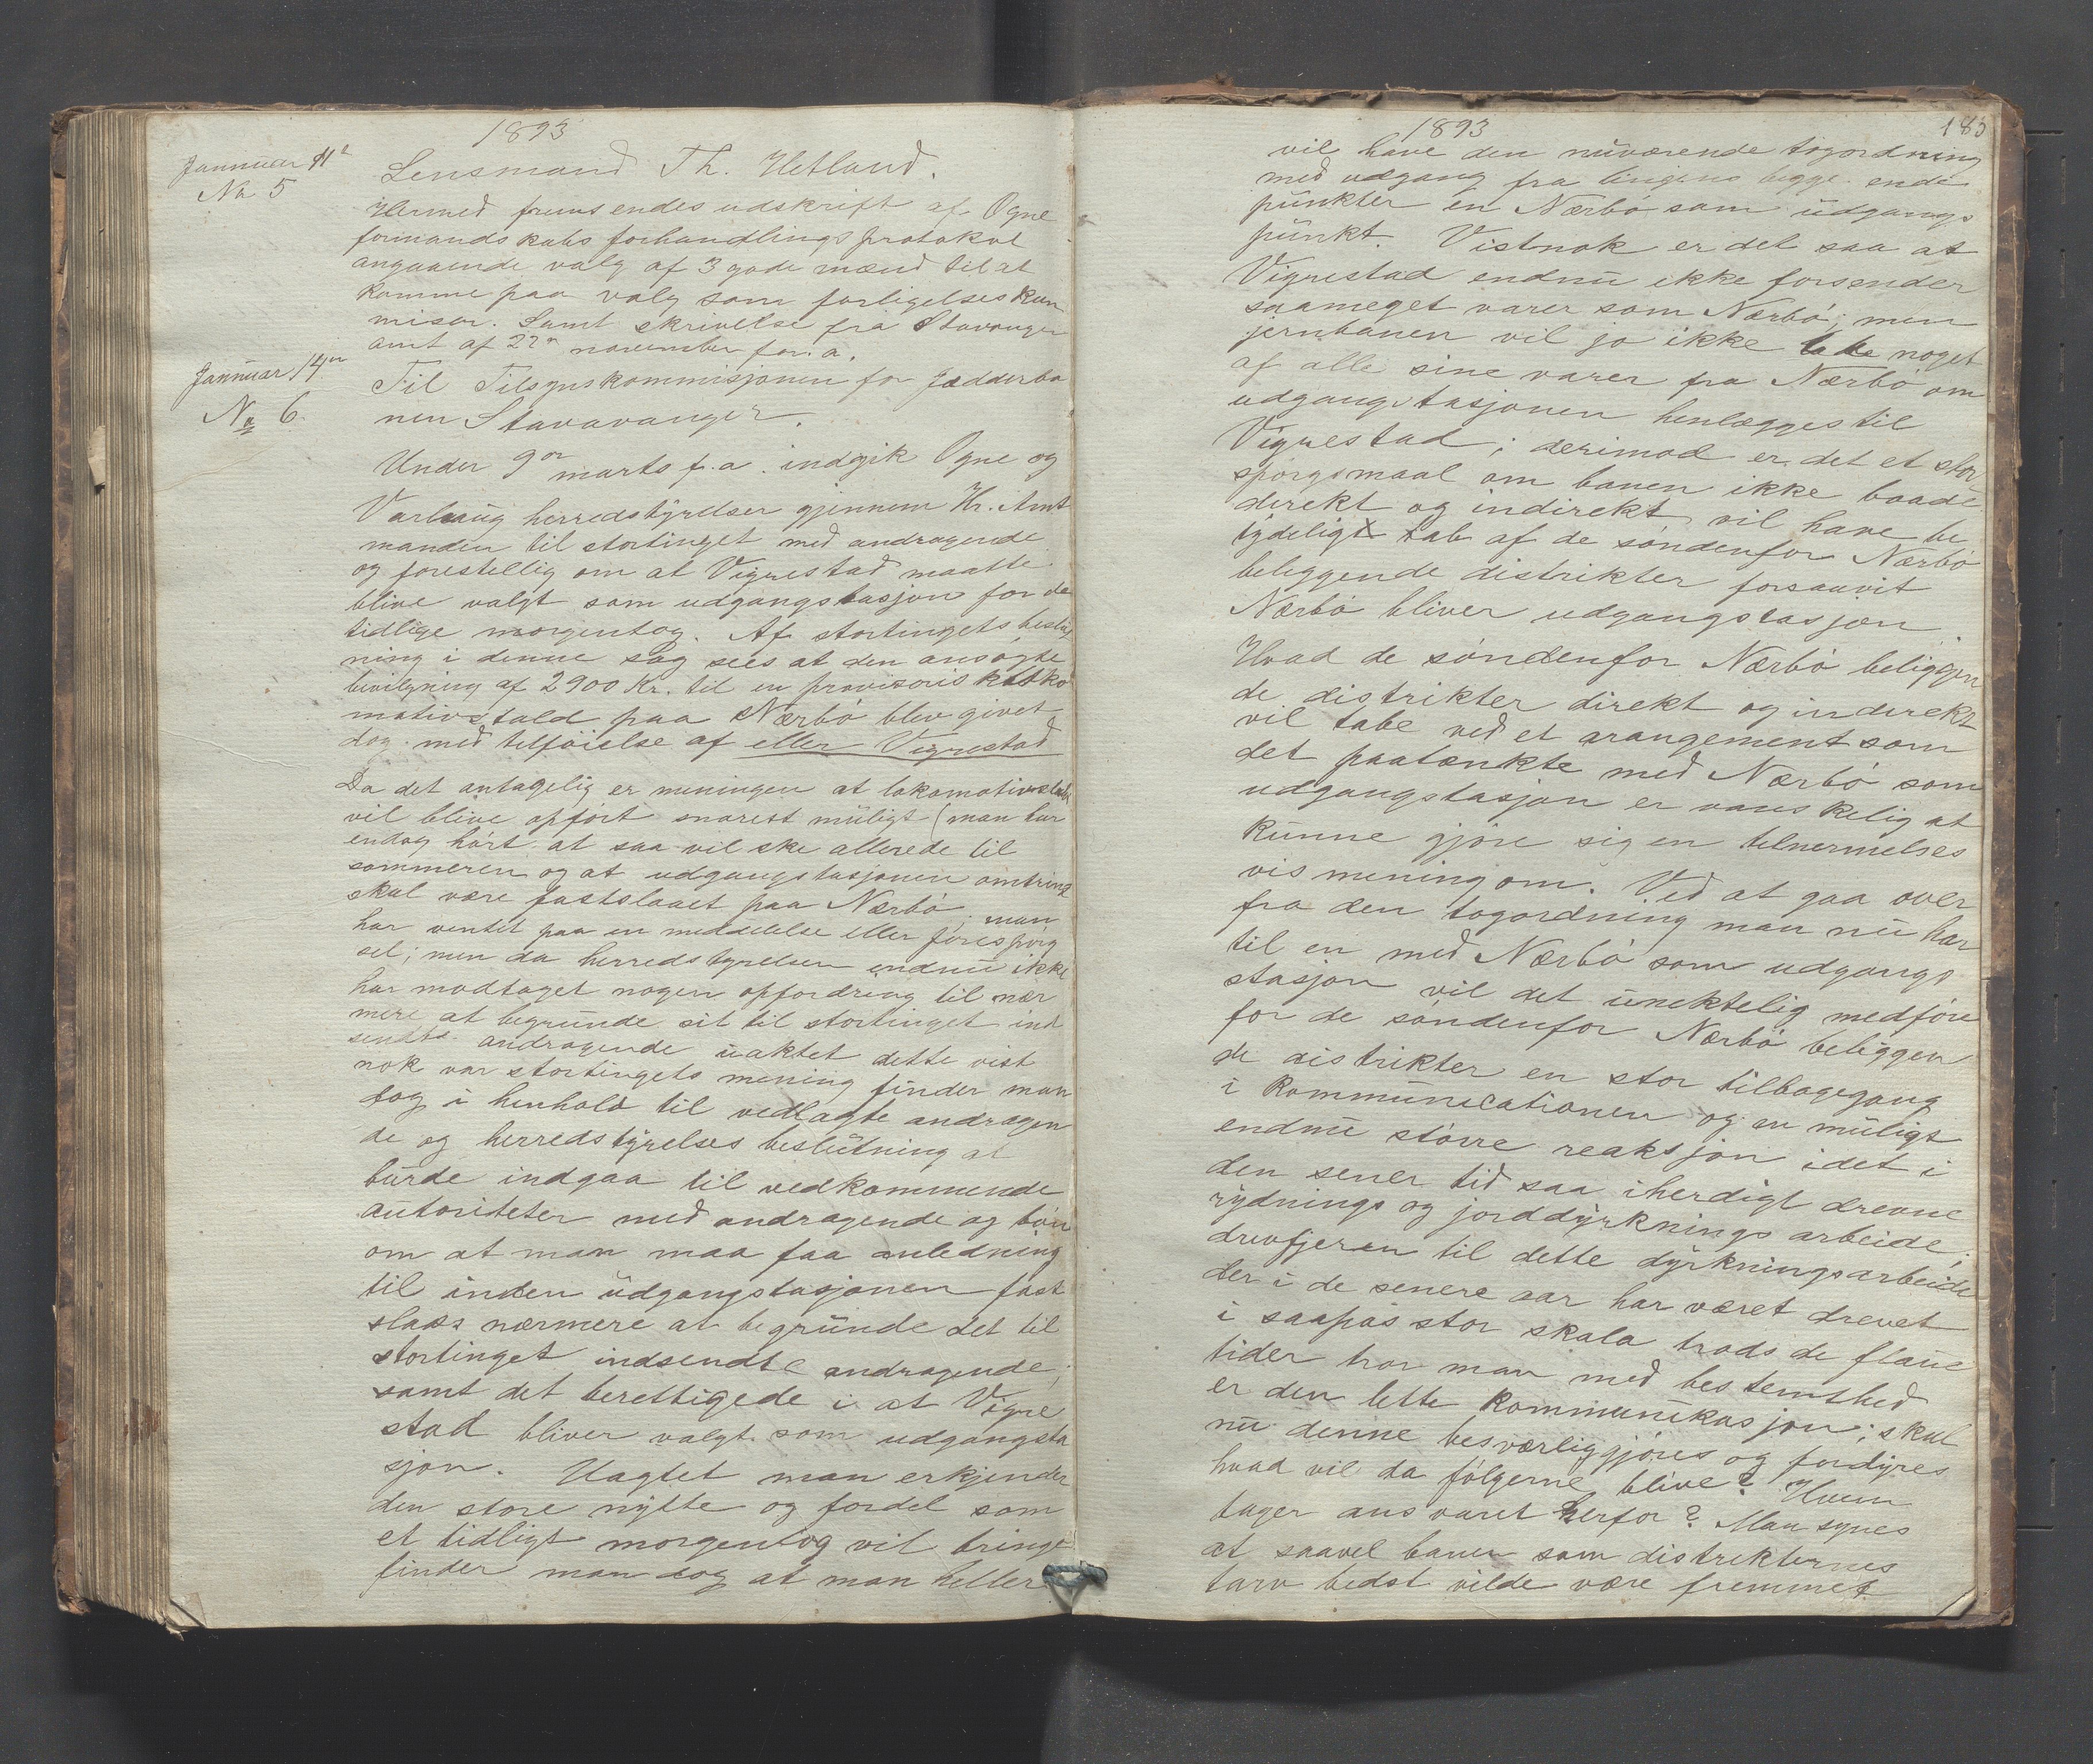 1893
Jannuar 11te
No 5
Lensmand Th. Hetland.
Hermed fremsendes udskrift af Ogne
formandskabs forhandlingsprotokol
angaaende valg af 3 gode mænd til at
komme paa valg som forligelseskom
misær. Samt skrivelse fra Stavanger
amt af 22n november for. a.
Jannuar 14en
No 6
Til Tilsynskommisjonen for Jædderba
nen Stavavanger.
Under 9de marts f.a. indgik Ogne og
Varhaug herredstyrelser gjennem Hr. Amt
manden til stortinget med andragende
og forestellig om at Vigrestad maatte
blive valgt som udgangstasjon for de
tidlige morgentog. Af stortingets beslut
ning i denne sag sees at den ansøgte
bevilgning af 2900 Kr. til en provisoris loko
motivstald paa Nærbö blev givet
dog med tilföielse af eller Vigrestad
Da det antagelig er meningen at lokomotivstald
vil blive opfört snarest müligt (man har
endog hört at saa vil ske allerede til
sommeren og at udgangstasjonen omtrint
skal være fastslaaet paa Nærbö; man
har ventet paa en meddelelse eller förespörg
sel; men da herredstyrelsen endnu ikke
har modtaget nogen opfordring til nær
mere at begrunde sit til stortinget ind
sendte andragende uaktet dette vist
nok var stortingets mening finder man
dog i henhold til vedlagte andragen
de og herredstyrelses beslütning at
burde indgaa til vedkommende
autoriteter med andragende og bön
om at man maa faa anledning
til inden udgangstasjonen fast
slaaes nærmere at begrunde det til
stortinget indsendte andragende;
samt det berettigede i at Vigre
stad bliver valgt som udgangsta
sjon. Uagtet man erkjender
den store nytte og fordel som
et tidligt morgentog vil bringe
finder man dog at man heller
1893
185
vil have den nuværende togordning
med udgang fra lingens begge ende
punkter en Nærbö som udgangs
punkt. Vistnok er det saa at
Vigrestad endnu ikke forsender
saameget varer som Nærbö; men
jernbanen vil jo ikke tabe noget
af alle sine varer fra Nærbö om
udgangstasjonen henlægges til
Vigrestad; derimod er det et stor
spörgsmaal om banen ikke baade
direkt og indirekt vil have be
tydeligt tab af de söndenfor Nærbö
beliggende distrikter forsaavit
Nærbö bliver udgangstasjon
Hvad de söndenfor Nærbö beliggen
de distrikter direkt og inderekt
vil tabe ved et arangement som
det paatænkte med Nærbö som
udgangstasjon er vanskelig at
kunne gjöre sig en tilnermelses
vis mening om. Ved at gaa over
fra den togordning man nu har
til en med Nærbö som udgangs
stasjon vil det unektelig medföre
for de söndenfor Nærbö beliggen
de distrikter en stor tilbagegang
i kommunecationen og en müligt
endnu större reaksjon idet i
den sener tid saa iherdigt drevne
rydnings og jorddyrknings arbeide;
drivfjeren til dette dyrkningsarbeide
der i de senere aar har været drevet
i saapas stor skala trods de flaue
tider tror man med bestemthed
er den lette kommunikasjon; skal
nu denne besværliggjöres og fordyres
hvad vil da fölgerne blive? Hvem
tager ansvaret herfor? Man synes
at saavel banen som distrikternes
tarv bedst vilde være fremmet